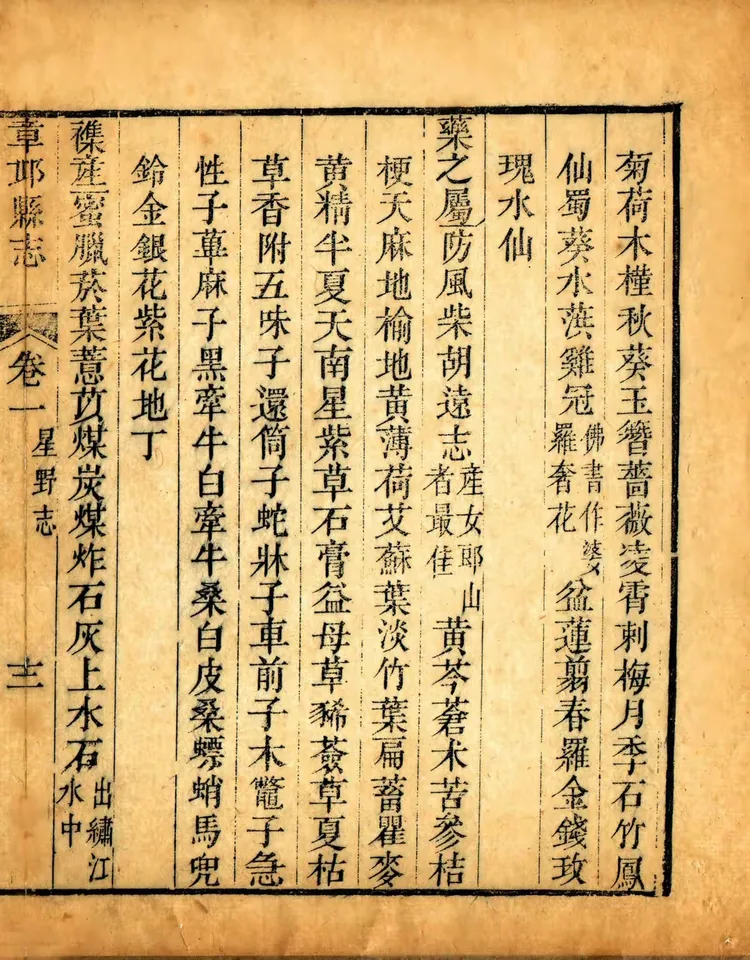 菊荷木槿秋葵玉簪薔薇凌霄刺梅月季石竹鳳
仙蜀葵水葓雞冠佛書作婆羅奢花盆蓮翦春羅金錢玫
瑰水仙
藥之屬防風柴胡遠志産女郎山者最佳黄芩蒼术苦參桔
梗天麻地榆地黄薄荷艾蘇葉淡竹葉扁蓄瞿麥
黄精半夏天南星紫草石膏益母草豨薟草夏枯
草香附五味子還筒子蛇牀子車前子木鼈子急
性子萆麻子黑牽牛白牽牛桑白皮桑螵蛸馬兜
鈴金銀花紫花地丁
襍産蜜臘菸葉薏苡煤炭煤炸石灰上水石出繡江水中
章邱縣志 卷一 星野志 十二